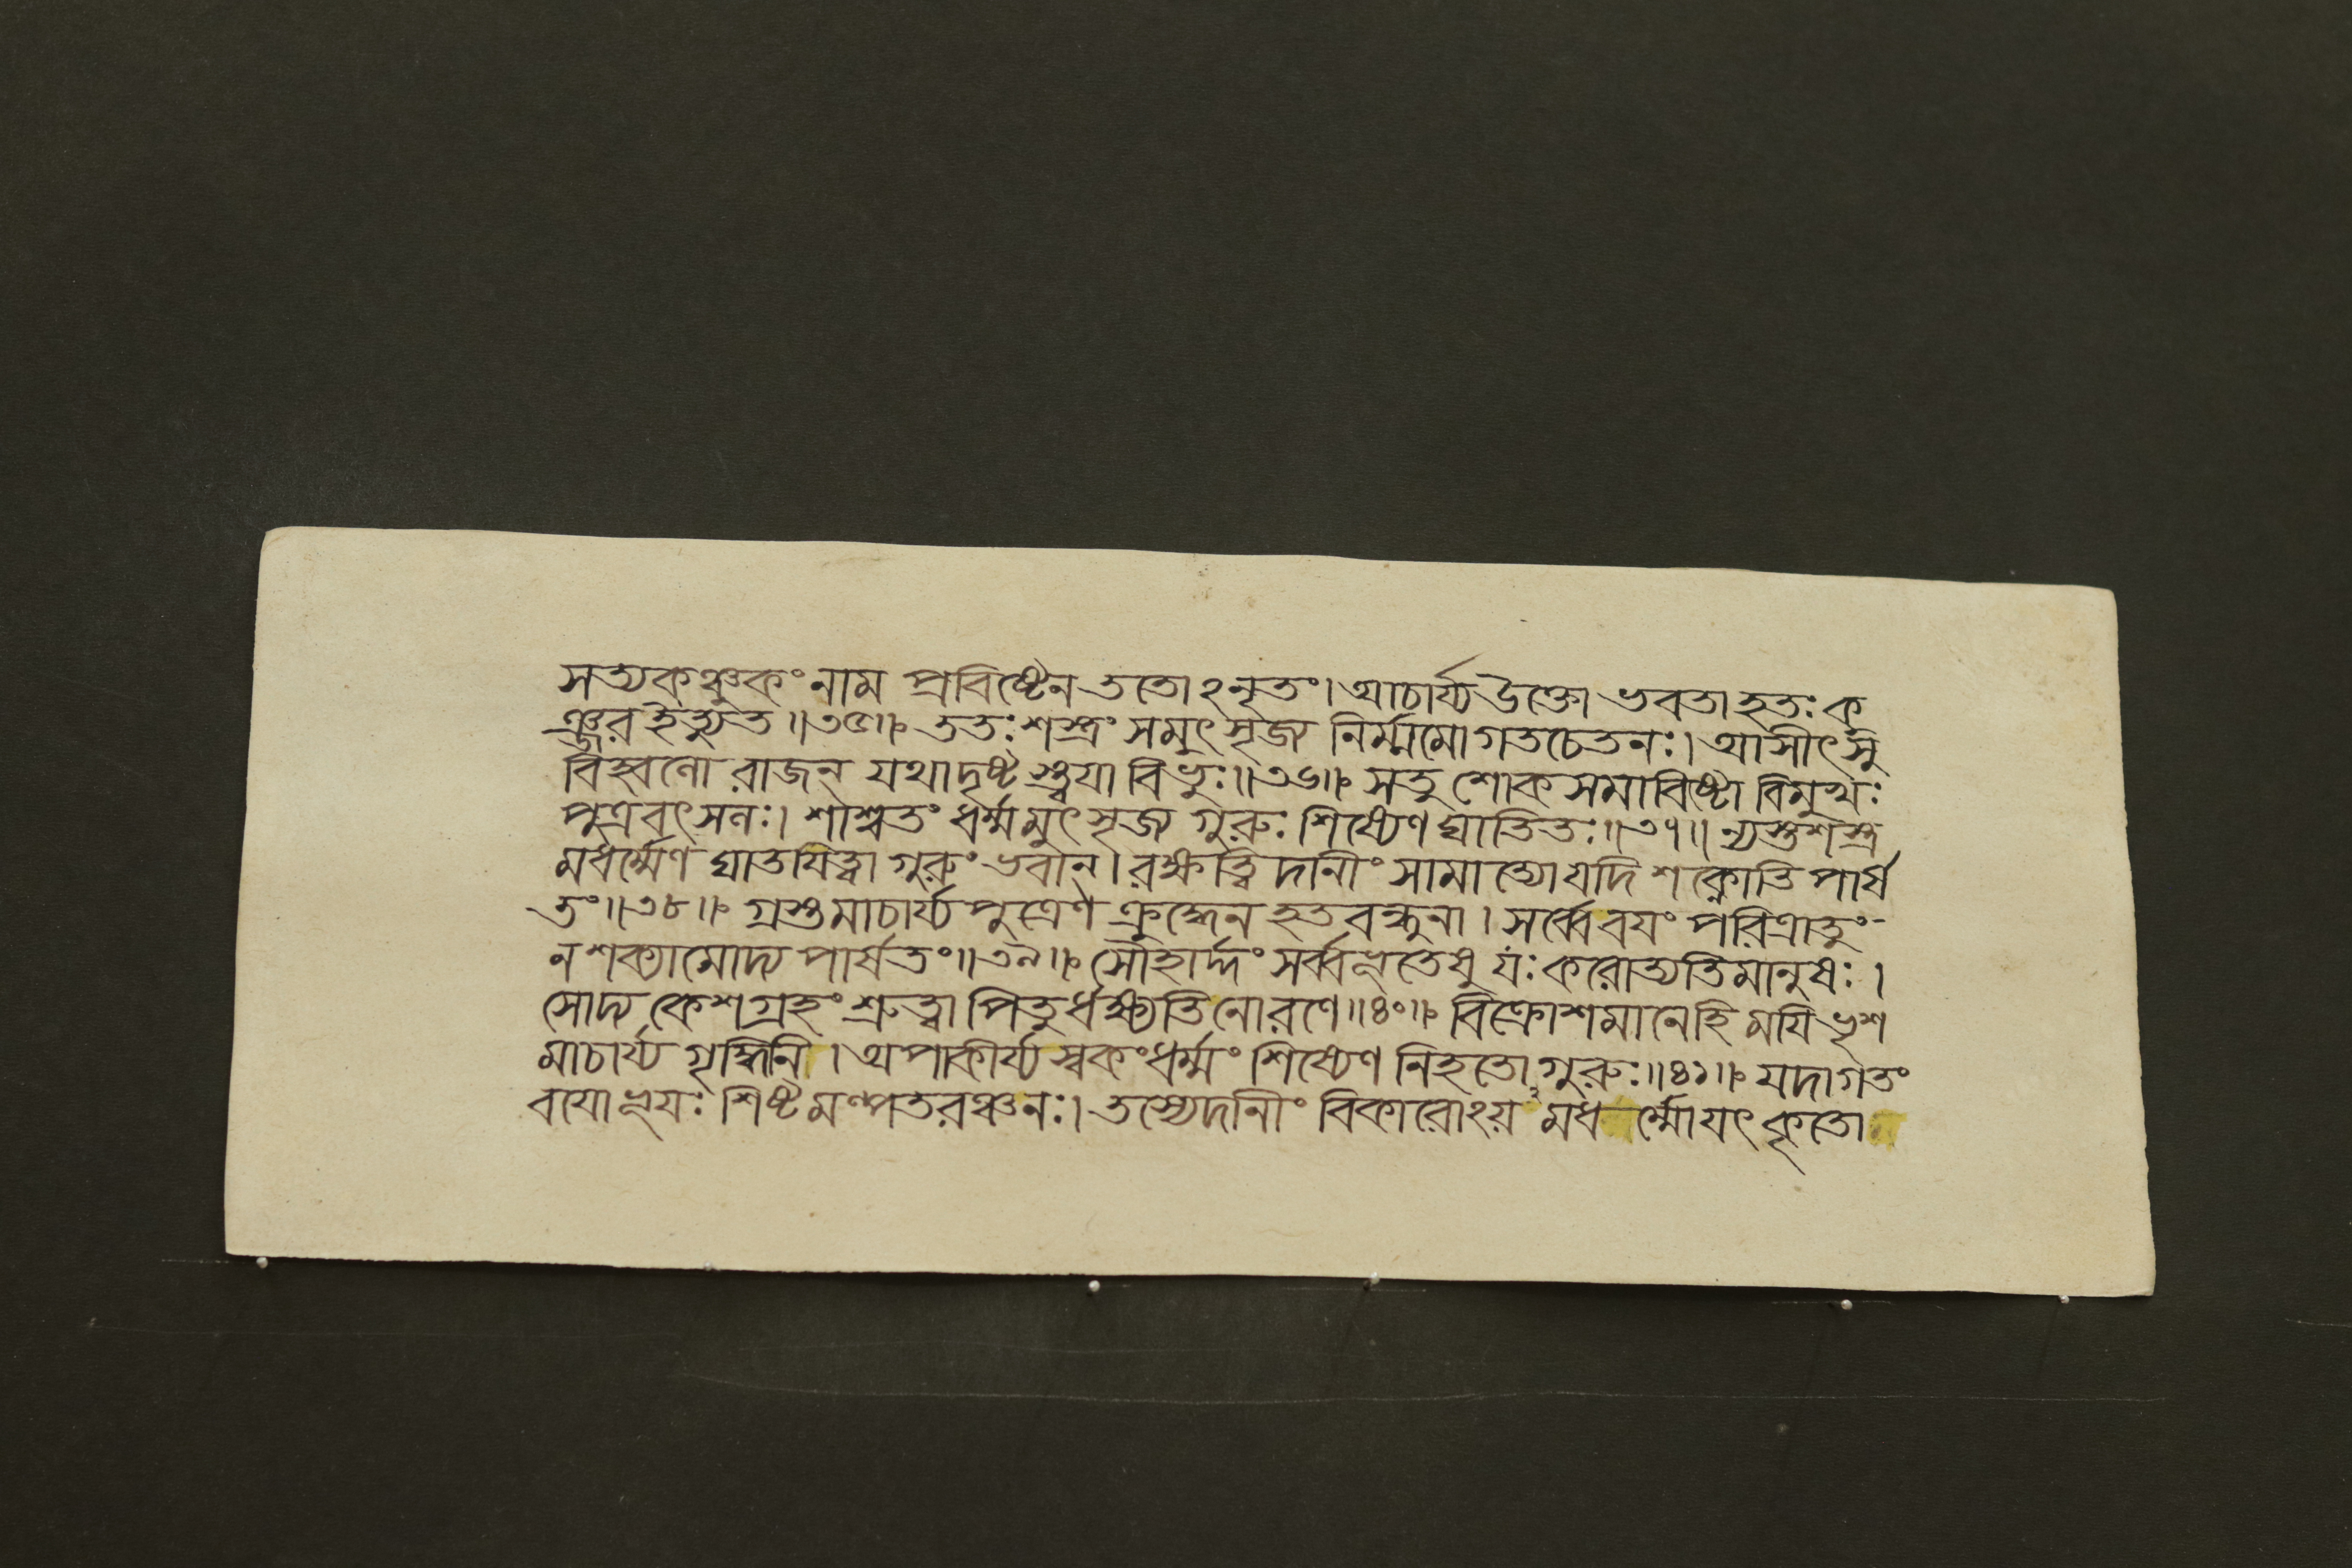 সত্যকঞ্চুকং নাম প্রবিষ্টেন ততোঽনৃতং। আচার্য্য উক্তো ভবতা হতঃ কু
ঞ্জর ইত্যুত॥৩৫॥ ততঃ শস্ত্রং সমুৎসৃজ্য নির্ম্মমো গতচেতনঃ। আসীৎ সু
বিহ্বলো রাজন্ যথা দৃষ্টস্ত্বয়া বিভুঃ॥৩৬॥ স তু শোক সমাবিষ্টো বিমুখঃ
পুত্রবৎসলঃ। শাশ্বতং ধর্ম্মমুৎসৃজ্য গুরুঃ শিষ্যেণ ঘাতিতঃ॥৩৭॥ ন্যস্তশস্ত্র
মধর্ম্মেণ ঘাতযিত্বা গুরুং ভবান্। রক্ষত্বিদানীং সামাত্যো যদি শক্নোতি পার্ষ
তং॥৩৮॥ গ্রস্তমাচার্য্য পুত্রেণ ক্রুদ্ধেন হতবন্ধুনা। সর্ব্বে বযং পরিত্রাতুং
ন শক্যামোদ্য পার্ষতং॥৩৯॥ সৌহার্দ্দং সর্ব্বভূতেষু যঃ করোত্যতিমানুষঃ।
সোদ্য কেশগ্রহং শ্রুত্বা পিতুর্ধক্ষ্যতি নো রণে॥৪০॥ বিক্রোশমানে হি মযি ভৃশ
মাচার্য্য গৃদ্ধিনি। অপাকীর্য্য স্বকং ধর্ম্মং শিষ্যেণ নিহতো গুরুঃ॥৪১॥ যদাগতং
বযো ভূযঃ শিষ্টমল্পতরঞ্চনঃ। তস্যেদানীং বিকারোঽয়মধর্ম্মো যৎ কৃতো